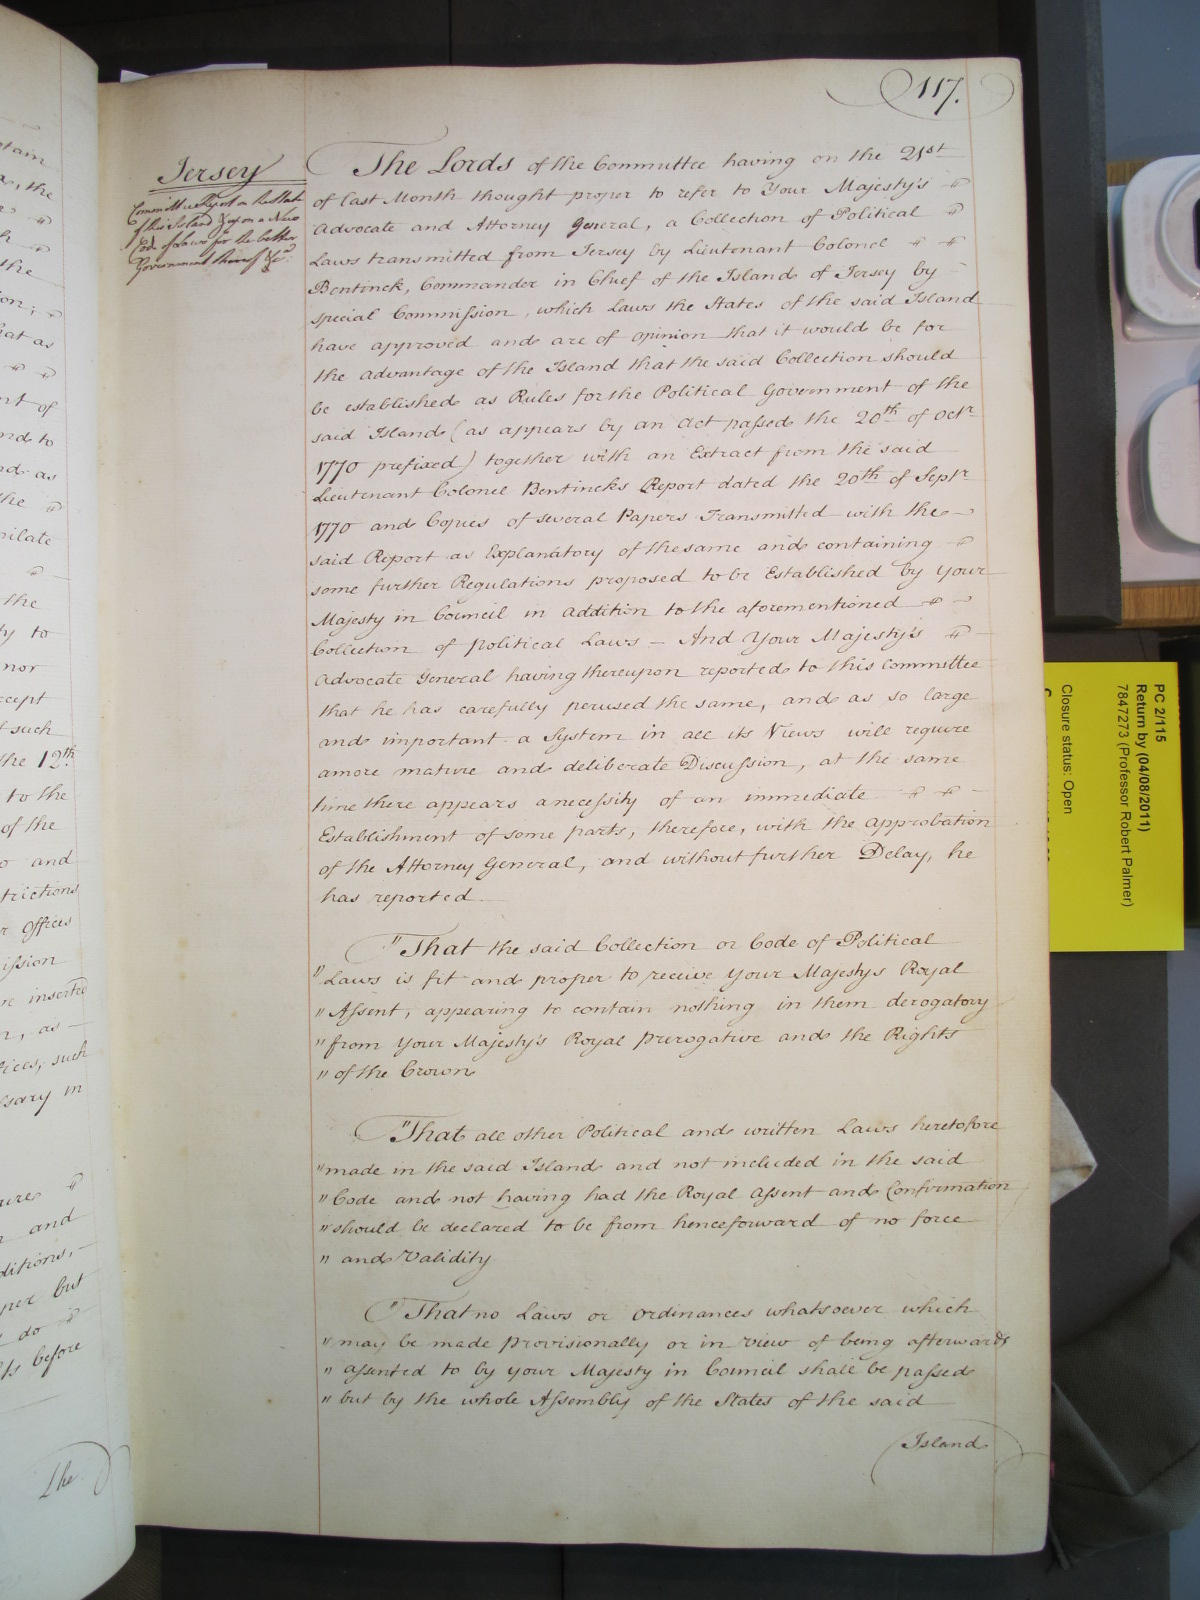 117.
Jersey
Committee Report on the State
of this Island & upon a New
Code of Laws for the better
Government thereof &ca.
The Lords of the Committee having on the 21st
of last Month thought proper to refer to Your Majesty's
Advocate and Attorney General, a Collection of Political
Laws transmitted from Jersey by Lieutenant Colonel
Bentinck, Commander in Chief of the Island of Jersey by
special Commission, which Laws the States of the said Island
have approved and are of opinion that it would be for
the advantage of the Island that the said Collection should
be established as Rules for the Political Government of the
said Island (as appears by an Act passed the 20th of Octr
1770 prefixed) together with an Extract from the said
Lieutenant Colonel Bentincks Report dated the 20th of Septr
1770 and Copies of several Papers Transmitted with the
said Report as Explanatory of the same and containing
some further Regulations proposed to be Established by your
Majesty in Council in addition to the aforementioned
Collection of Political Laws – And Your Majesty's
Advocate General having thereupon reported to this Committee
that he has carefully perused the same, and as so large
and important a System in all its Views will require
a more mature and deliberate Discussion, at the same
time there appears a necessity of an immediate
Establishment of some parts, therefore, with the approbation
of the Attorney General, and without further Delay, he
has reported
"That the said Collection or Code of Political
"Laws is fit and proper to receive your Majestys Royal
"Assent, appearing to contain nothing in them derogatory
"from your Majesty's Royal Prerogative and the Rights
"of the Crown
"That all other Political and written Laws heretofore
"made in the said Island and not included in the said
"Code and not having had the Royal Assent and Confirmation
"should be declared to be from henceforward of no force
"and Validity
"That no Laws or Ordinances whatsoever which
"may be made provisionally or in view of being afterwards
"assented to by your Majesty in Council shall be passed
"but by the whole Assembly of the States of the said
Island
tain
the
the
on;
hat as
nt of
and to
as
the
the
ty to
nor
such
the 12th
to the
of the
and
trictions
Offices
inserted
as –
such
in
and
ditions,
but
do
before
The
PC 2/115
Return by (04/08/2011)
7847273 (Professor Robert Palmer)
Closure status: Open